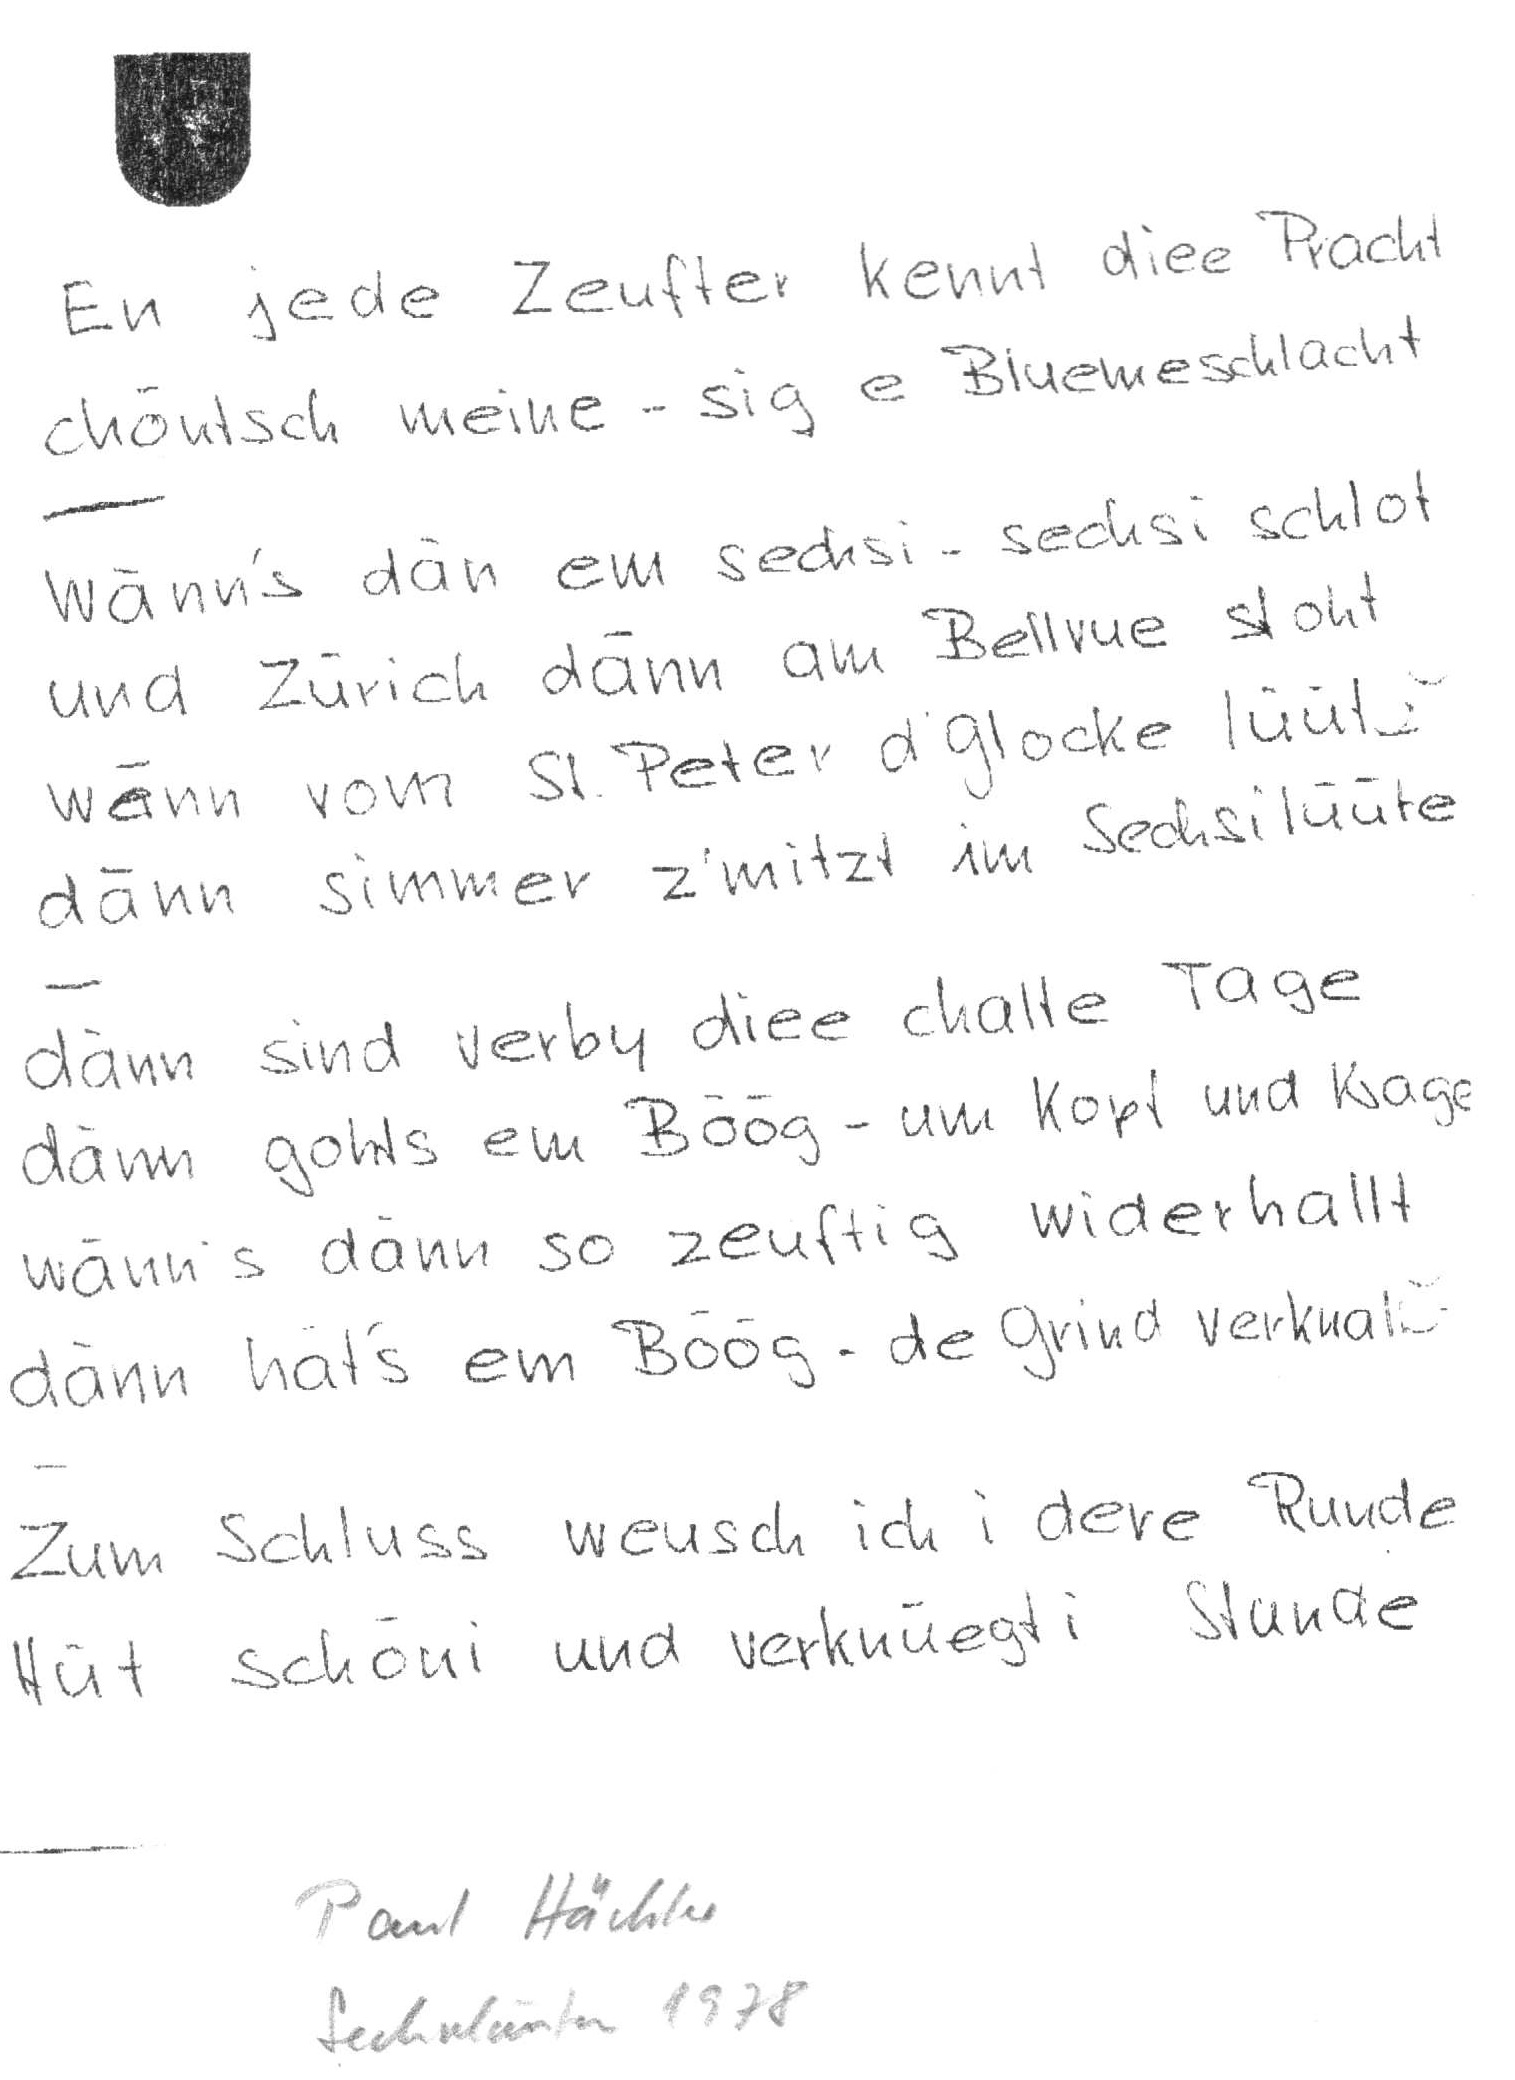 En jede Zeufter kennt diee Pracht
chöntsch meine - sig e Bluemeschlacht
Wänn's dän em sechsi - sechsi schlot
und Zürich dänn am Bellvue stoht
wänn vom St. Peter d'Glocke lüüt
dänn simmer z'mitzt im Sechsilüüte
dänn sind verby diee chalte Tage
dänn gohts em Böög - um Kopf und Krage
wänn's dänn so zeuftig widerhallt
dänn hät's em Böög - de Grind verknallt
Zum Schluss weusch ich i dere Runde
Hüt schöni und verknüegti Stunde
Paul
1978